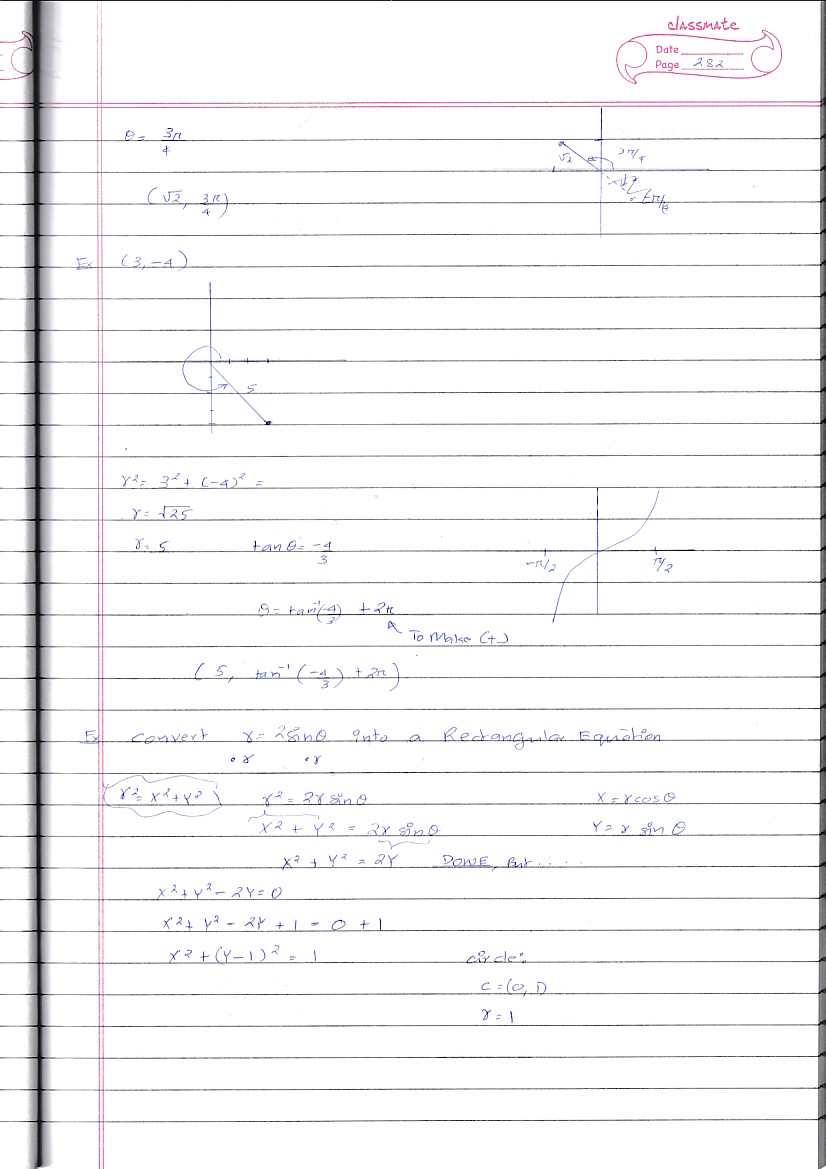 classmate
Date
Page 282
θ = 3π/4
(√2, 3π/4)
√2 3π/4
Ex (3, -4)
5
r² = 3² + (-4)² =
r = √25
r = 5 tan θ = -4/3
-π/2 π/2
θ = tan⁻¹(-4/3) + 2π
To Make (+)
(5, tan⁻¹(-4/3) + 2π)
Ex Convert r = 2sinθ into a Rectangular Equation
•r •r
r² = x² + y² r² = 2r sinθ x = r cosθ
x² + y² = 2r sinθ y = r sinθ
x² + y² = 2y DONE, But....
x² + y² - 2y = 0
x² + y² - 2y + 1 = 0 + 1
x² + (y-1)² = 1 circle:
c = (0, 1)
r = 1